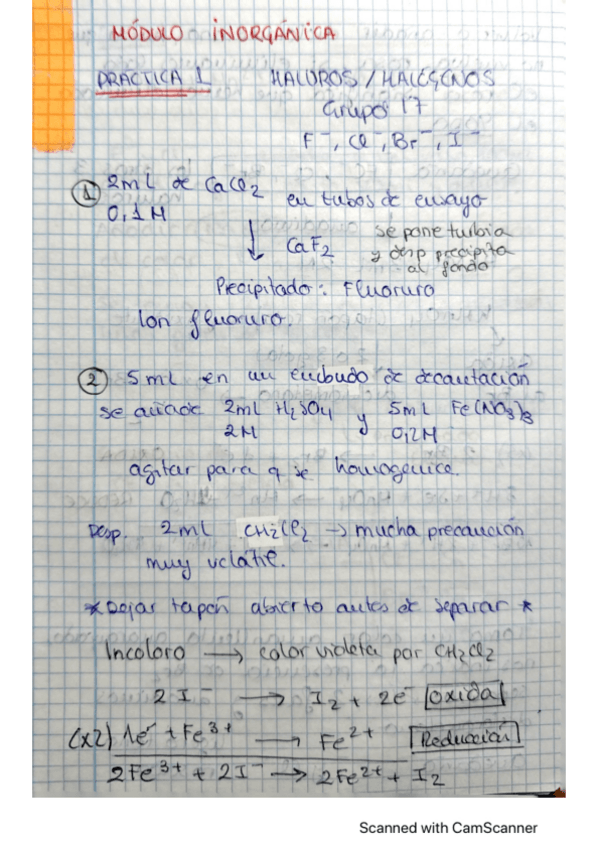 MÓDULO INORGÁNICA
PRACTICA 1 HALUROS / HALÓGENOS
Grupo 17
F⁻, Cl⁻, Br⁻, I⁻
① 2mL de CaCl₂ en tubos de ensayo
0,1M
↓ CaF₂ se pone turbia
y desp precipita
al fondo
Precipitado: Fluoruro
Ion fluoruro.
② 5ml en un embudo de decantación
se añade 2ml H₂SO₄ y 5ml Fe(NO₃)₃
2M 0,2M
agitar para q se homogenice.
Desp. 2ml CH₂Cl₂ → mucha precaución
muy volátil.
*Dejar tapón abierto antes de separar *
Incoloro → color violeta por CH₂Cl₂
2 I⁻ → I₂ + 2e⁻ Oxida
(x2) 1e⁻ + Fe³⁺ → Fe²⁺ Reducción
2Fe³⁺ + 2I⁻ → 2Fe²⁺ + I₂
Scanned with CamScanner